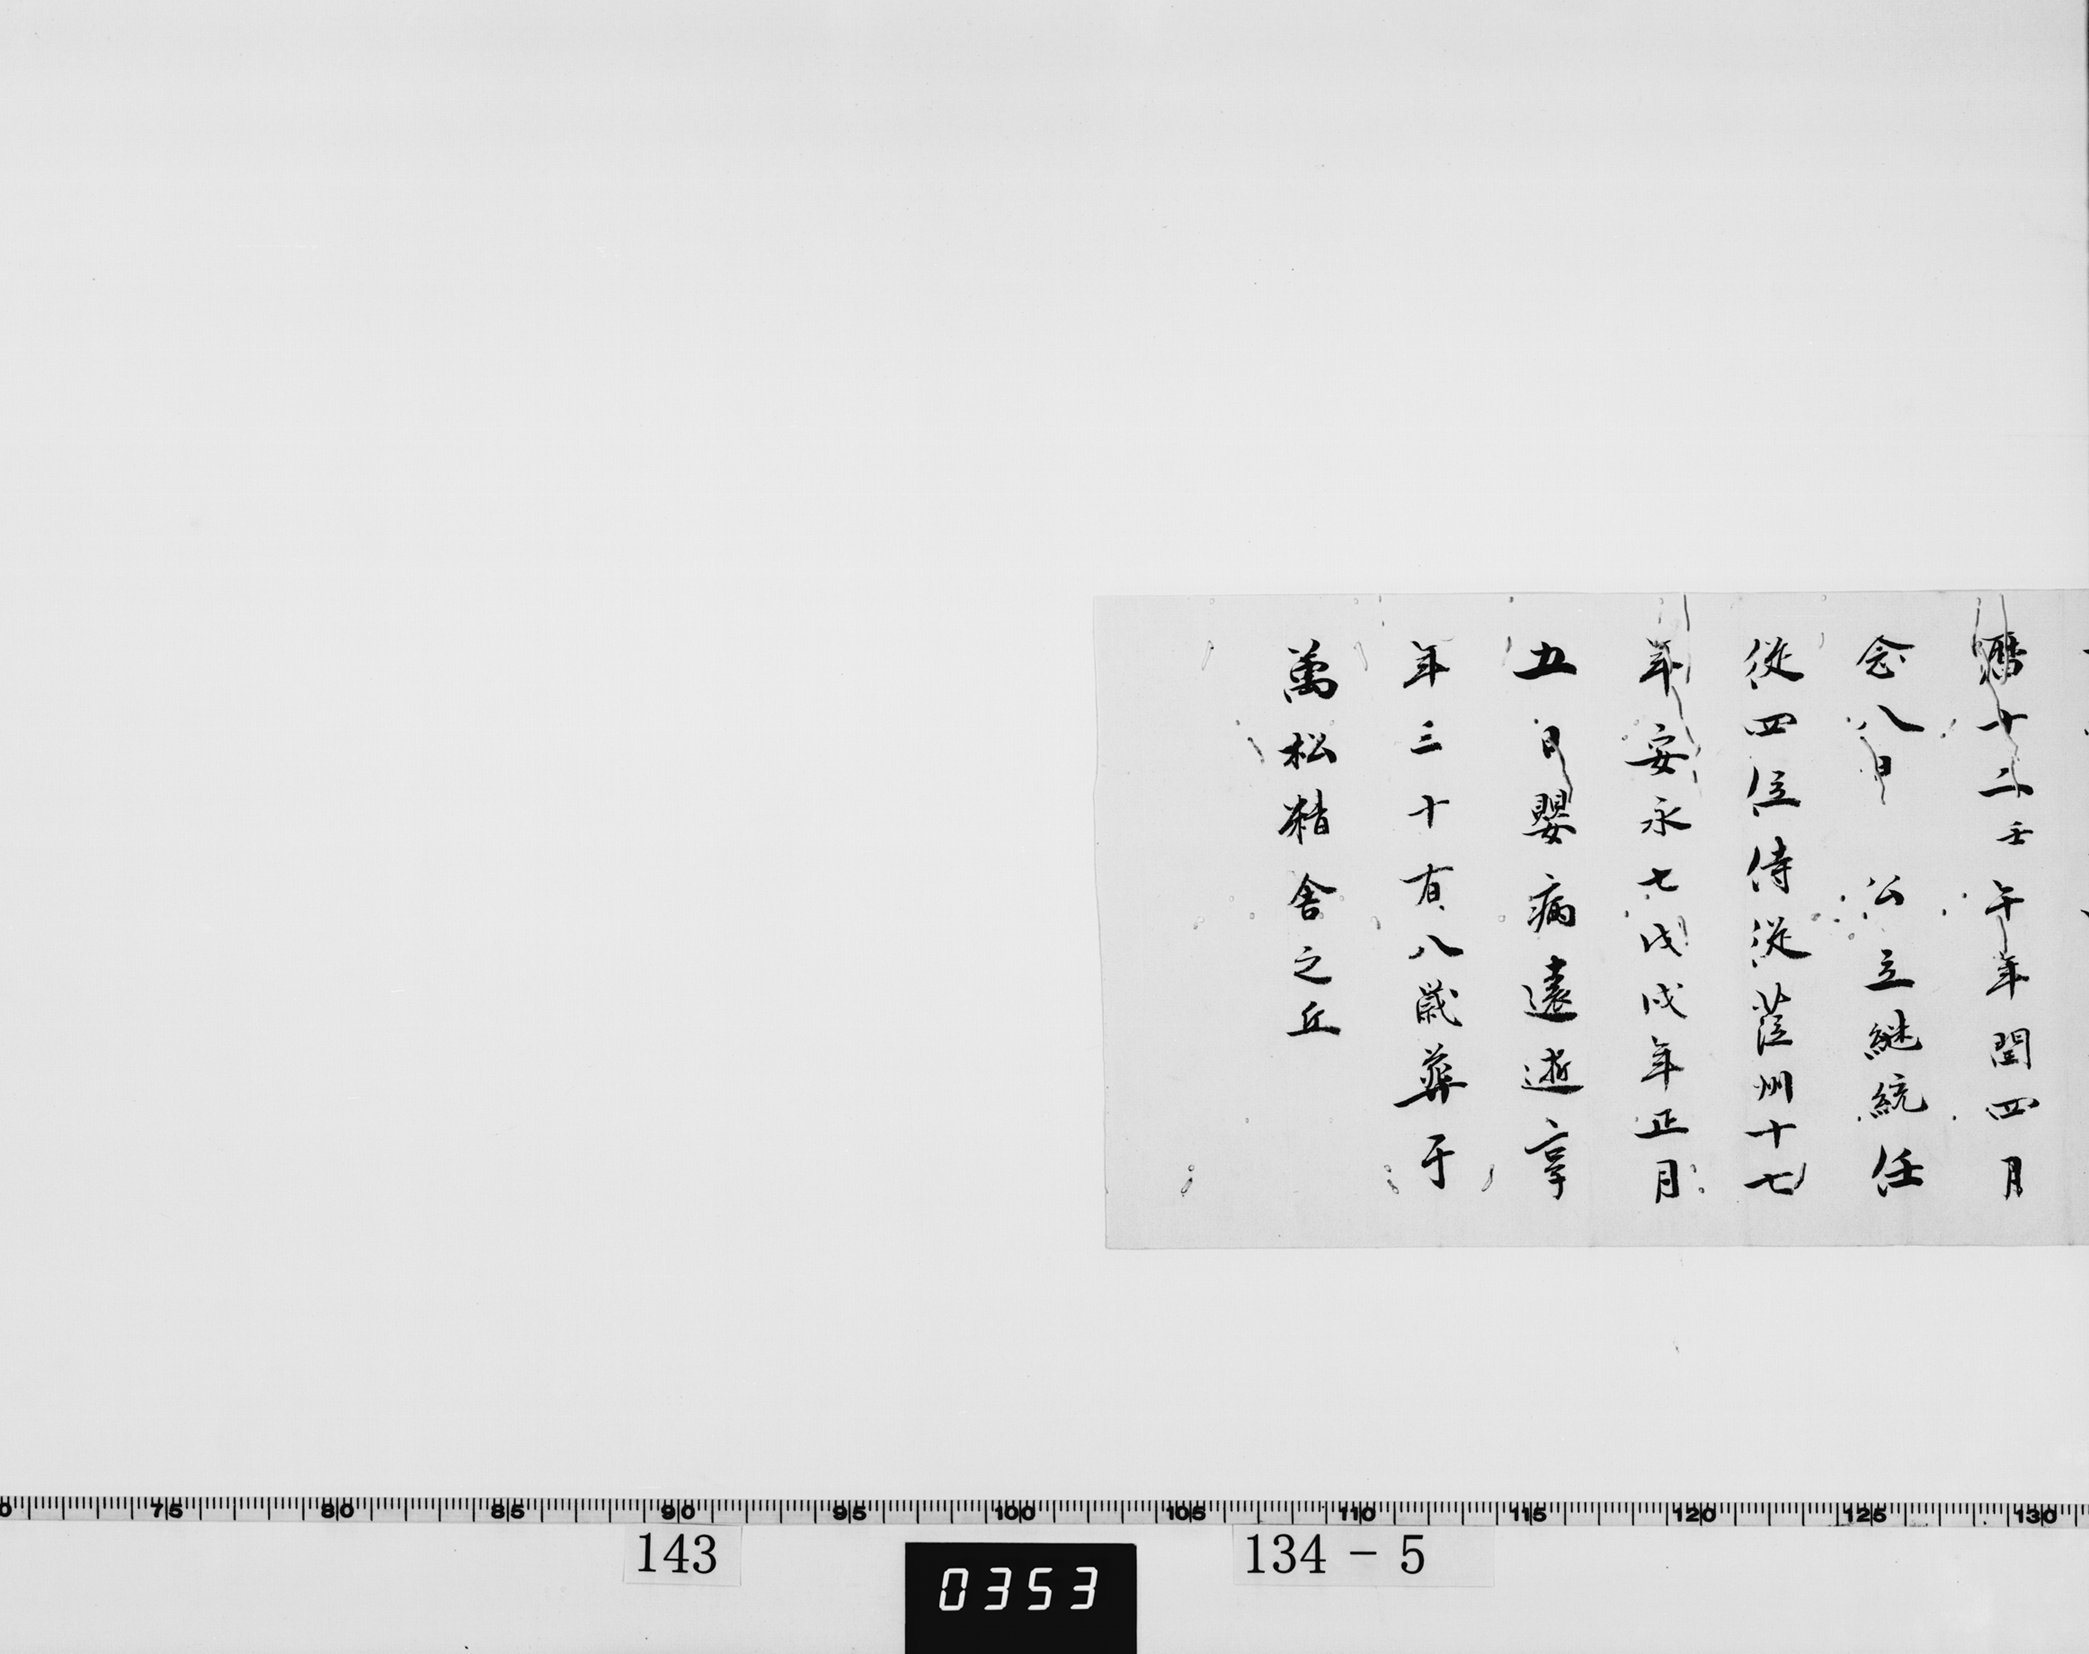 暦十二壬午年閏四月
念八日　公立継統任
従四位侍従莅州十七
年安永七戊戌年正月
五日嬰病遠逝享
年三十有八歳葬于
萬松精舎之丘
75 80 85 90 95 100 105 110 115 120 125 130
143
0353
134-5